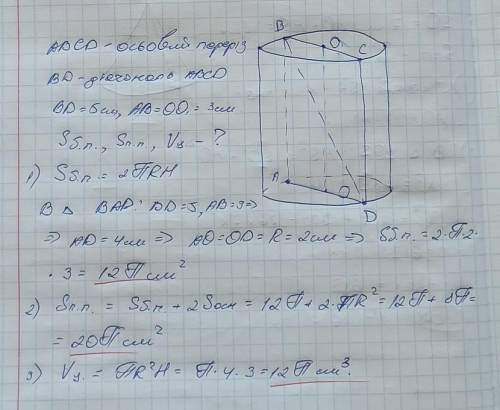 ABCD - осьовий переріз
BD - діагональ ABCD
BD = 5 см, AB = OO₁ = 3 см
Sб.п., Sп.п., Vц - ?
1) Sб.п. = 2πRH
В △ BAD: BD = 5, AB = 3 ⇒
⇒ AD = 4 см ⇒ AO = OD = R = 2 см ⇒ Sб.п. = 2·π·2·
· 3 = 12π см²
2) Sп.п. = Sб.п. + 2Sосн = 12π + 2·πR² = 12π + 8π =
= 20π см²
3) Vц. = πR²H = π·4·3 = 12π см³.
B
O₁
C
A
O
D